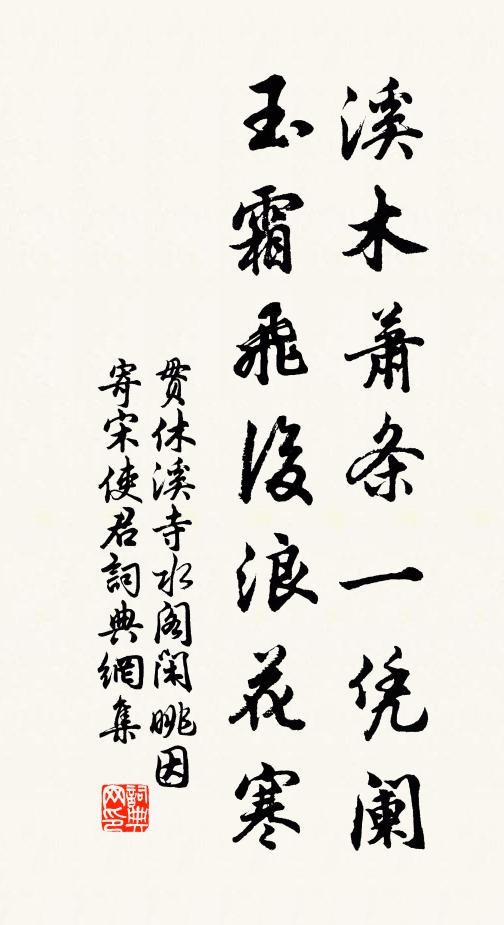 溪木萧条一凭阑
玉霜飛後浪花寒
贯休溪寺水阁闲眺因
寄宋使君詞典網集
詞典网印